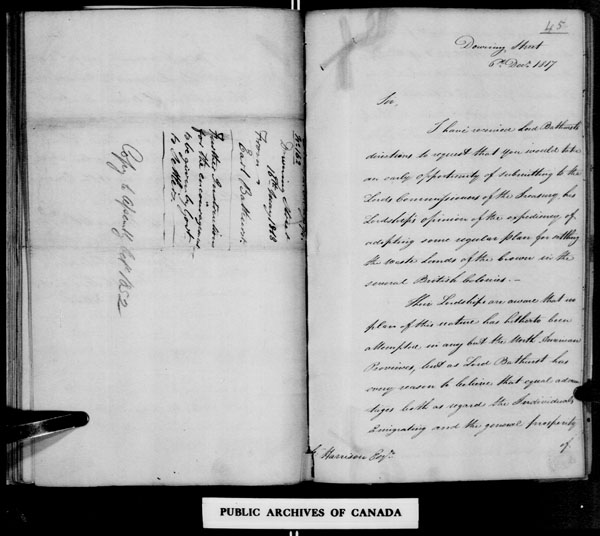 No. 162
Downing Street
16th Jany 1818
From
Earl Bathurst
Further Instructions
for the encouragement
to be given by Govt
to Settlers
45
Downing Street
6th Decr. 1817
Sir,
I have received Lord Bathursts
directions to request that you would take
an early opportunity of submitting to the
Lords Commissioners of the Treasury his
Lordship's opinion of the expediency of
adopting some regular plan for settling
the waste lands of the Crown in the
several British Colonies.—
Their Lordships are aware that no
plan of this nature has hitherto been
attempted in any but the North American
Provinces, but as Lord Bathurst has
every reason to believe that equal advan
tages both as regards the Individuals
Emigrating and the general prosperity
of
Harrison Esqr.
PUBLIC ARCHIVES OF CANADA